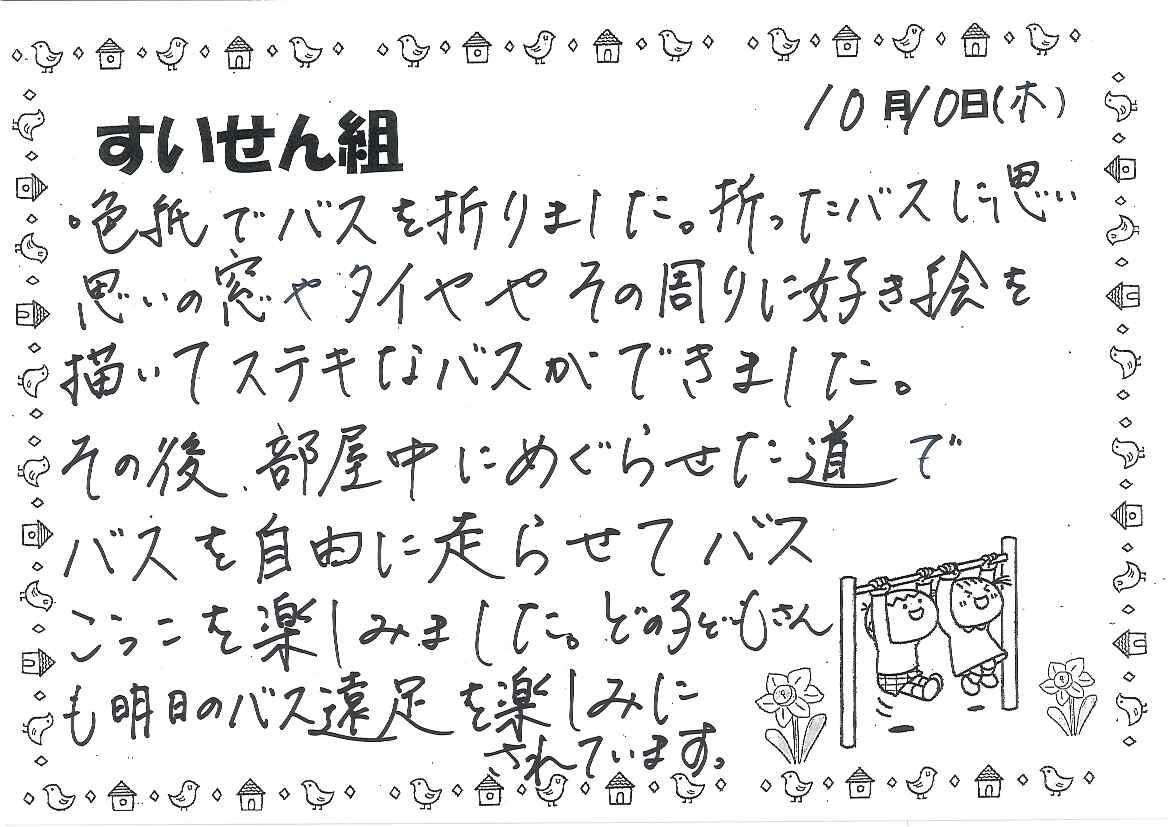 10月10日(木)
すいせん組
・色紙でバスを折りました。折ったバスに思い
思いの窓やタイヤや その周りに好き絵を
描いてステキなバスができました。
その後、部屋中にめぐらせた道で
バスを自由に走らせてバス
こっこを楽しみました。どの子どもさん
も明日のバス遠足を楽しみに
されています。